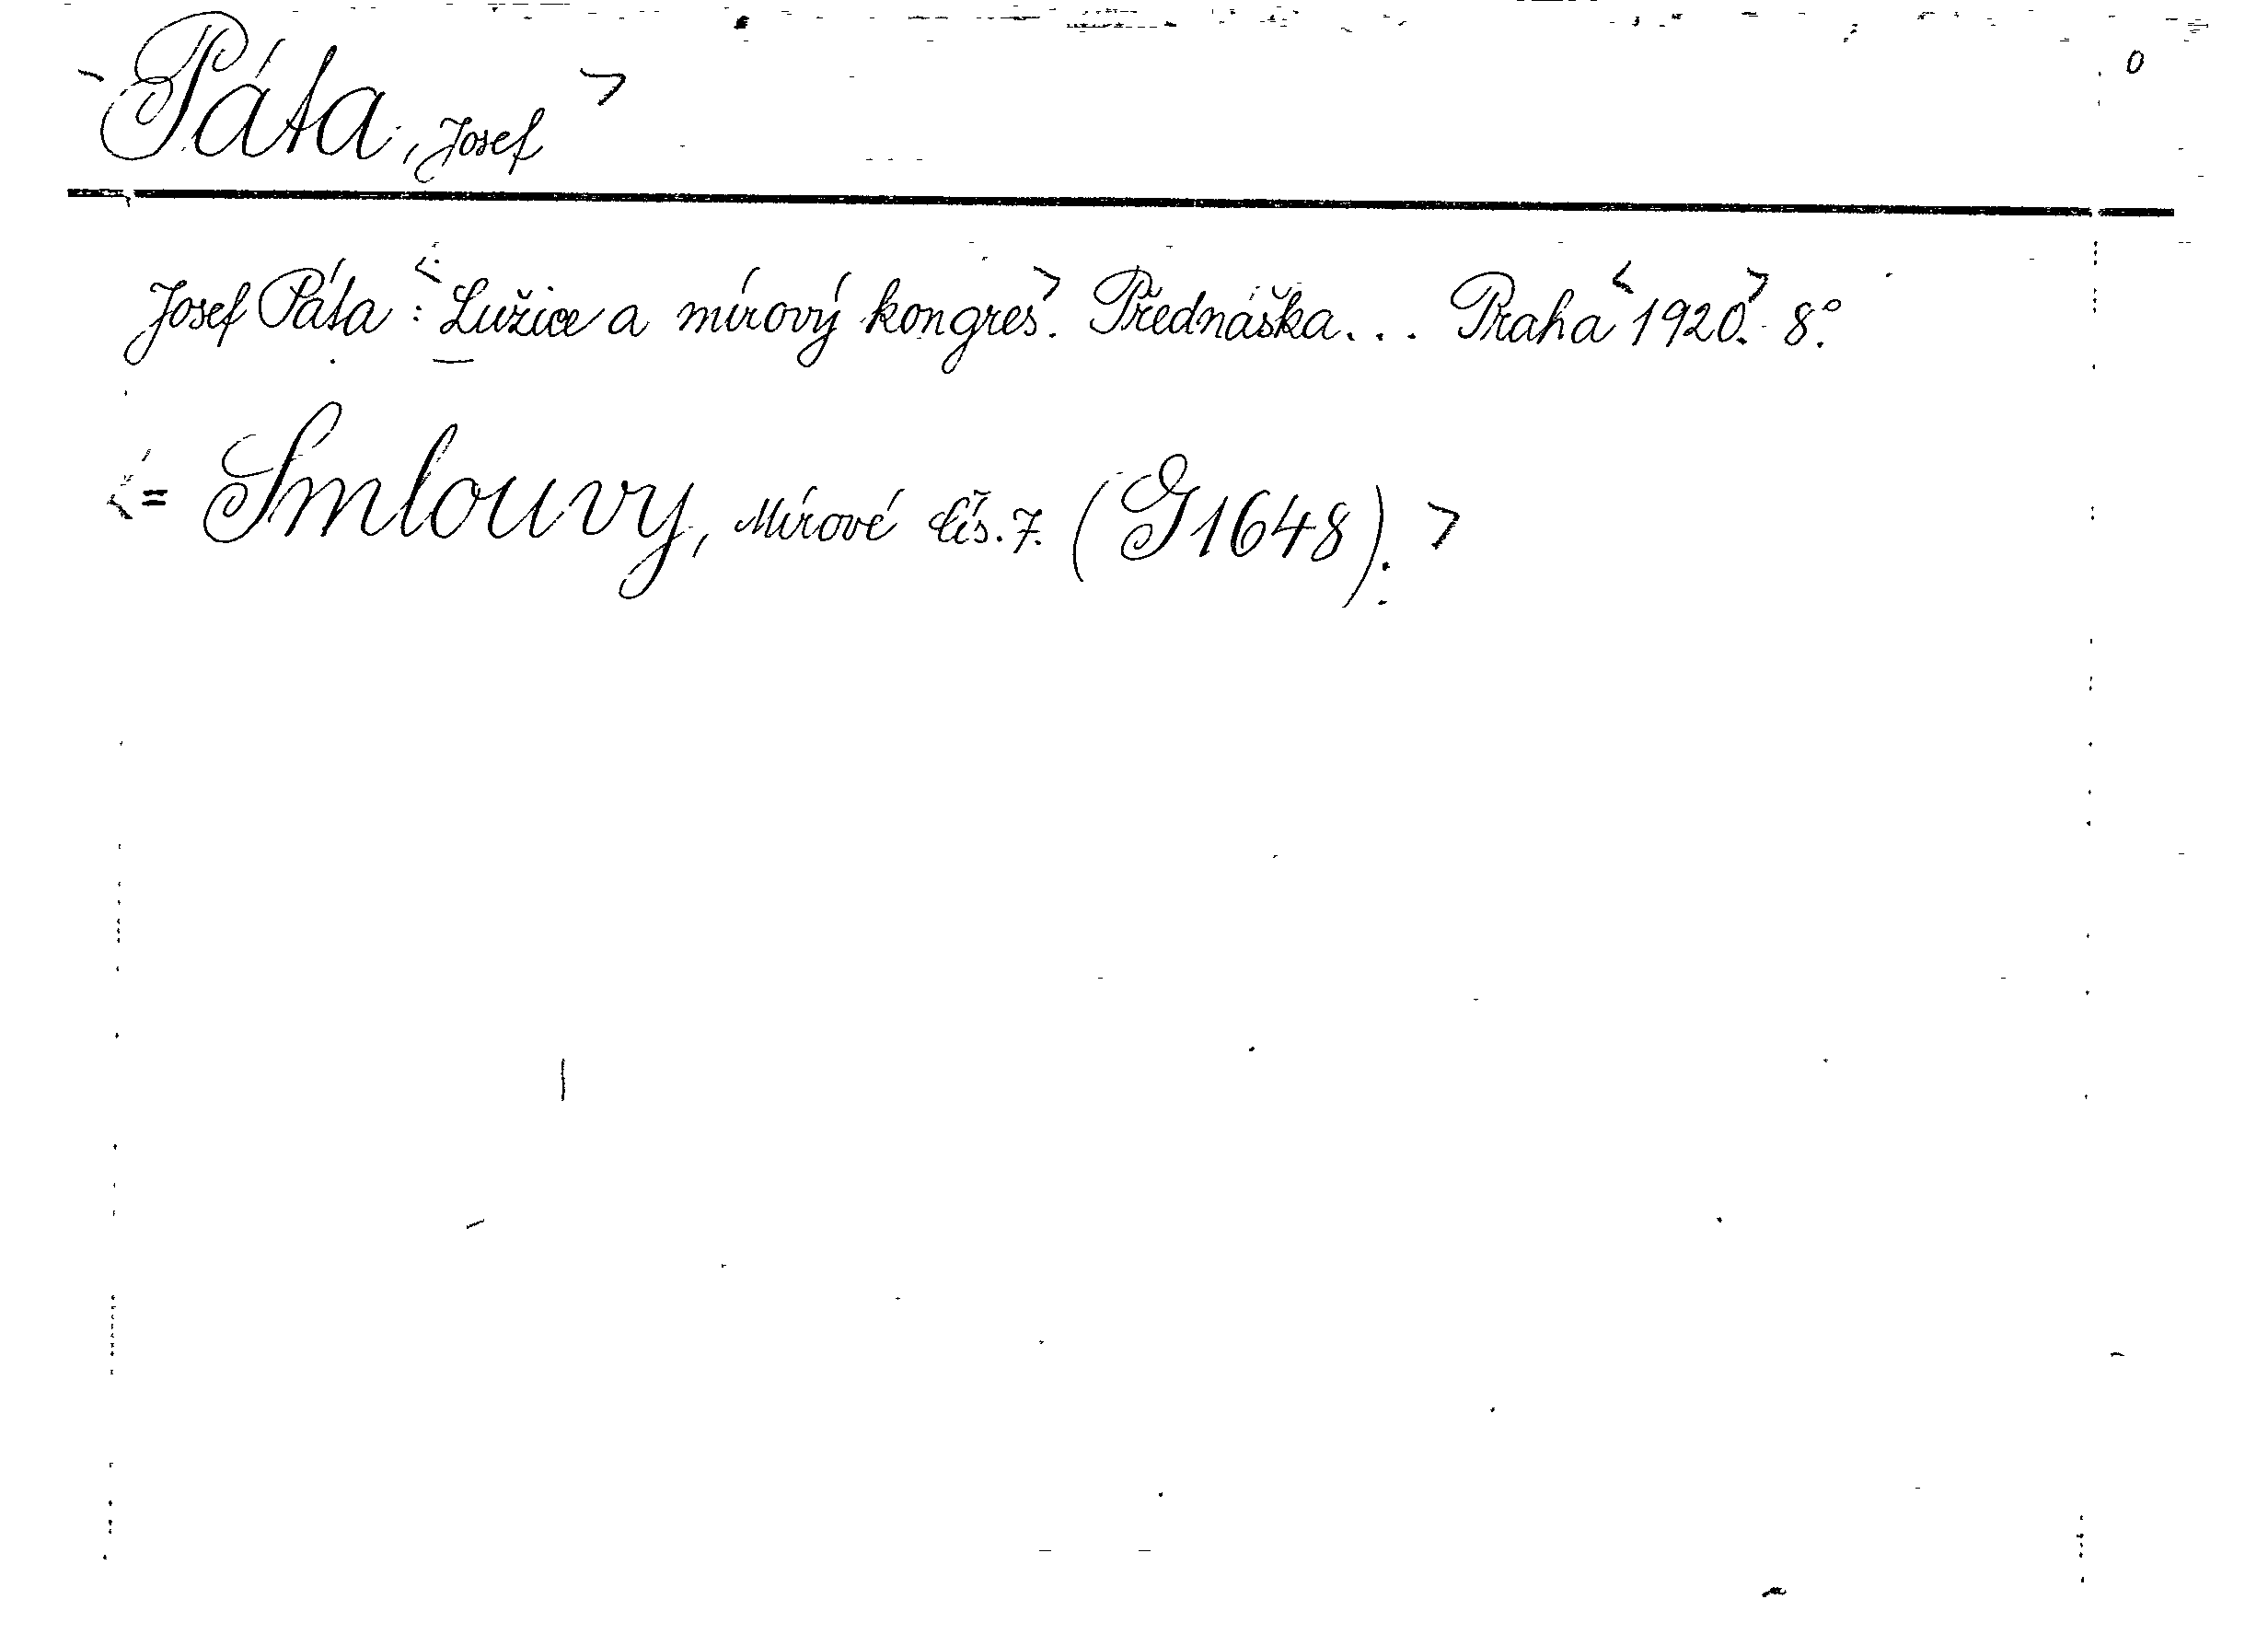 <Páta, Josef> 0
Josef Páta: <Lužice a mírový kongres>. Přednáška... Praha <1920>. 8°.
<= Smlouvy, Mírové čís. 7. (G1648).>